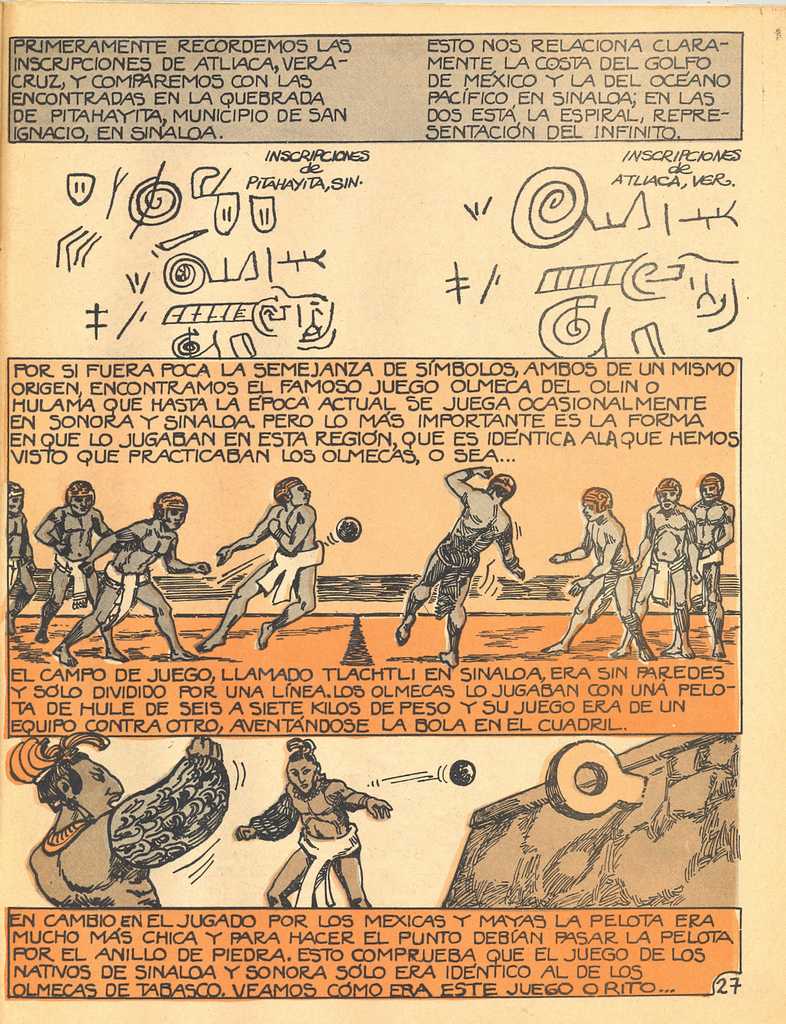 PRIMERAMENTE RECORDEMOS LAS
INSCRIPCIONES DE ATLIACA, VERA-
CRUZ, Y COMPAREMOS CON LAS
ENCONTRADAS EN LA QUEBRADA
DE PITAHAYITA, MUNICIPIO DE SAN
IGNACIO, EN SINALOA.
ESTO NOS RELACIONA CLARA-
MENTE, LA COSTA DEL GOLFO
DE MEXICO Y LA DEL OCEANO
PACÍFICO, EN SINALOA; EN LAS
DOS ESTÁ LA ESPIRAL, REPRE-
SENTACIÓN DEL INFINITO.
INSCRIPCIONES
de
PITAHAYITA, SIN.
INSCRIPCIONES
de
ATLIACA, VER.
POR SI FUERA POCA LA SEMEJANZA DE SÍMBOLOS, AMBOS DE UN MISMO
ORIGEN, ENCONTRAMOS EL FAMOSO JUEGO OLMECA DEL OLIN O
HULAMA QUE HASTA LA ÉPOCA ACTUAL SE JUEGA OCASIONALMENTE
EN SONORA Y SINALOA. PERO LO MÁS IMPORTANTE ES LA FORMA
EN QUE LO JUGABAN EN ESTA REGIÓN, QUE ES IDÉNTICA A LA QUE HEMOS
VISTO QUE PRACTICABAN LOS OLMECAS, O SEA...
EL CAMPO DE JUEGO, LLAMADO TLACHTLI EN SINALOA, ERA SIN PAREDES
Y SÓLO DIVIDIDO POR UNA LÍNEA. LOS OLMECAS LO JUGABAN CON UNA PELO-
TA DE HULE DE SEIS A SIETE KILOS DE PESO Y SU JUEGO ERA DE UN
EQUIPO CONTRA OTRO, AVENTÁNDOSE LA BOLA EN EL CUADRIL.
EN CAMBIO EN EL JUGADO POR LOS MEXICAS Y MAYAS LA PELOTA ERA
MUCHO MÁS CHICA Y PARA HACER EL PUNTO DEBÍAN PASAR LA PELOTA
POR EL ANILLO DE PIEDRA. ESTO COMPRUEBA QUE EL JUEGO DE LOS
NATIVOS DE SINALOA Y SONORA SÓLO ERA IDÉNTICO AL DE LOS
OLMECAS DE TABASCO. VEAMOS CÓMO ERA ESTE JUEGO O RITO...
27